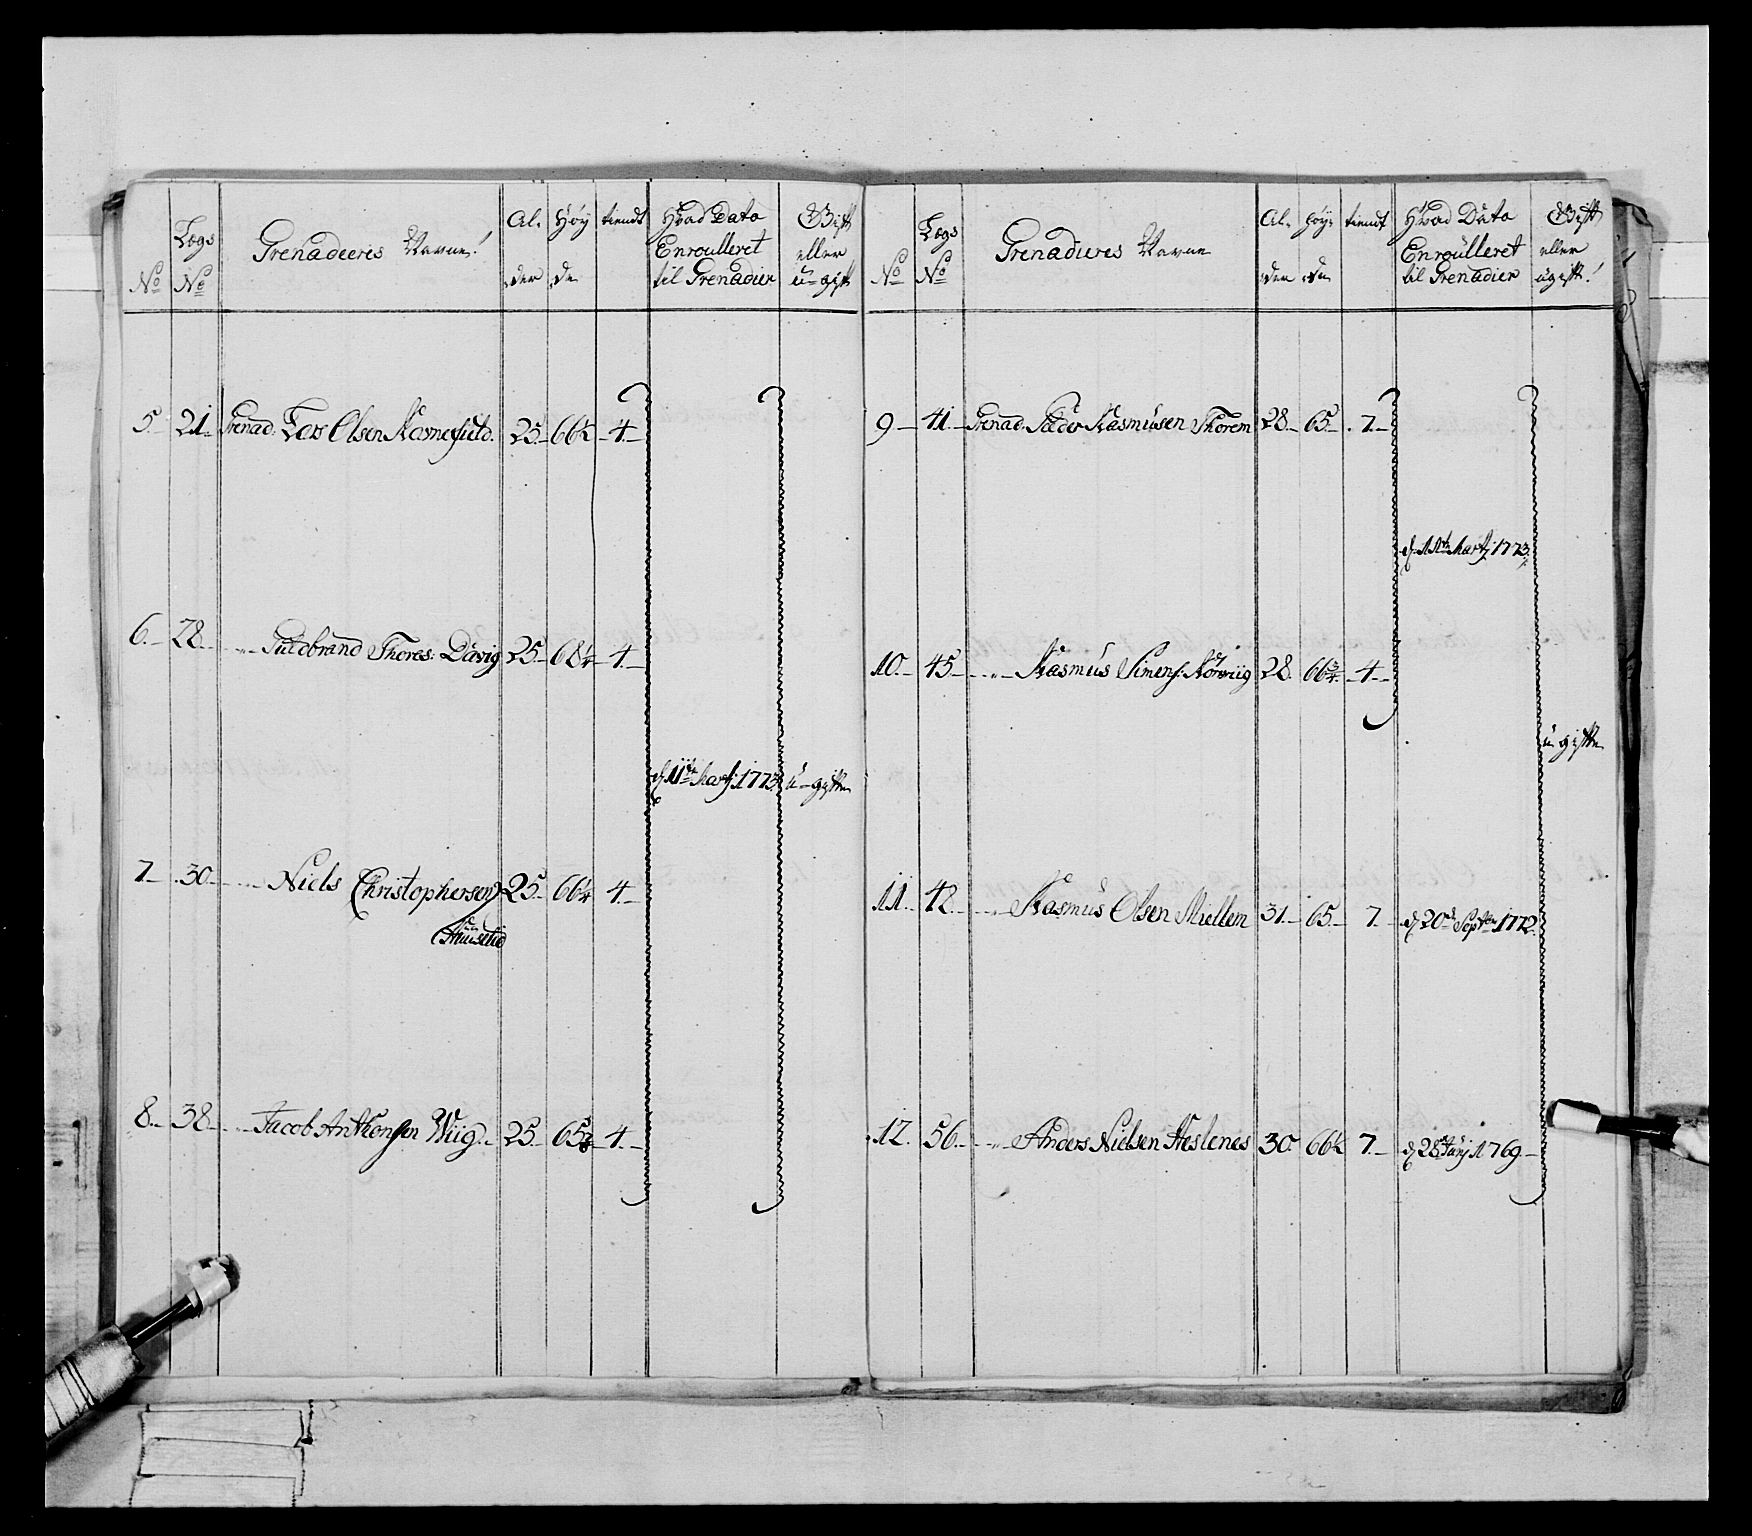 No
Lægs No
Grenadeeres Navne!
Al. der
Høy de
tiendt
Hvad Dato Enroulleret til Grenadier
Gift eller u-gift
5. 21. Grenad: Lars Olsen 25 66½ 4
6. 28. Guldbrand Thores: Døvig 25 68¼ 4
7. 30. Niels Christophersen 25 66¼ 4
d 11te Martj 1773. u-giftte
8. 38. Jacob Anthonsen Wiig 25 65 4
No
Lægs No
Grenadieres Navne
Al. der
Høy- de
tiendt
Hvad Dato Enroulleret til Grenadier
Gift eller ugift!
9 41. Grenad. Peder Rasmusen Thorem 28. 65. 7
d 11te Martj 1773.
10. 45. Rasmus Simens: 28. 66¾ 4
u giftte
11. 48. Rasmus Olsen Miellem 31. 65. 7 d 20de Septbr 1772.
12. 56. Anders Nielsen Heslenes 30. 66½ 7. d 28de Junj 1769